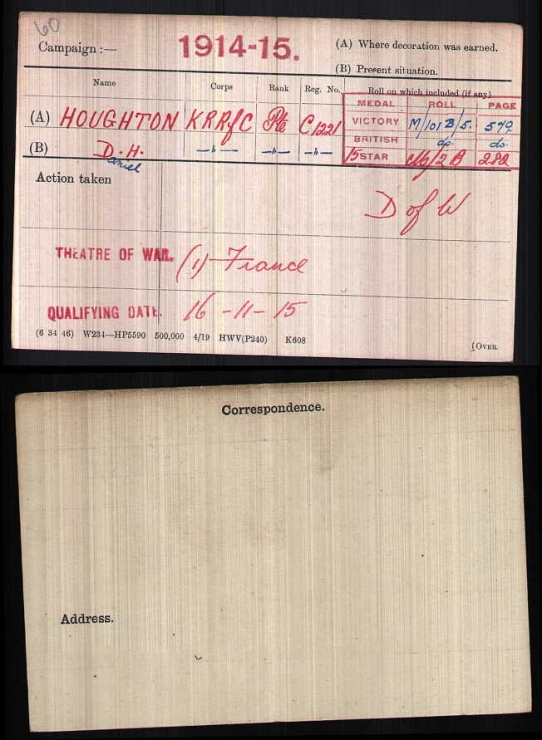 60
Campaign :— 1914-15. (A) Where decoration was earned.
(B) Present situation.
Name Corps Rank Reg. No. Roll on which included (if any)
MEDAL ROLL PAGE
(A) HOUGHTON KRRfC Pte C1221 VICTORY M/101B/5. 549.
(B) D.H. —"— —"— —"— BRITISH do. do.
Daniel 15 STAR 2B 282
Action taken
D of W
THEATRE OF WAR. (1) France
QUALIFYING DATE. 16-11-15
(6 34 46) W234—HP5590 500,000 4/19 HWV(P240) K608
[OVER.
Correspondence.
Address.